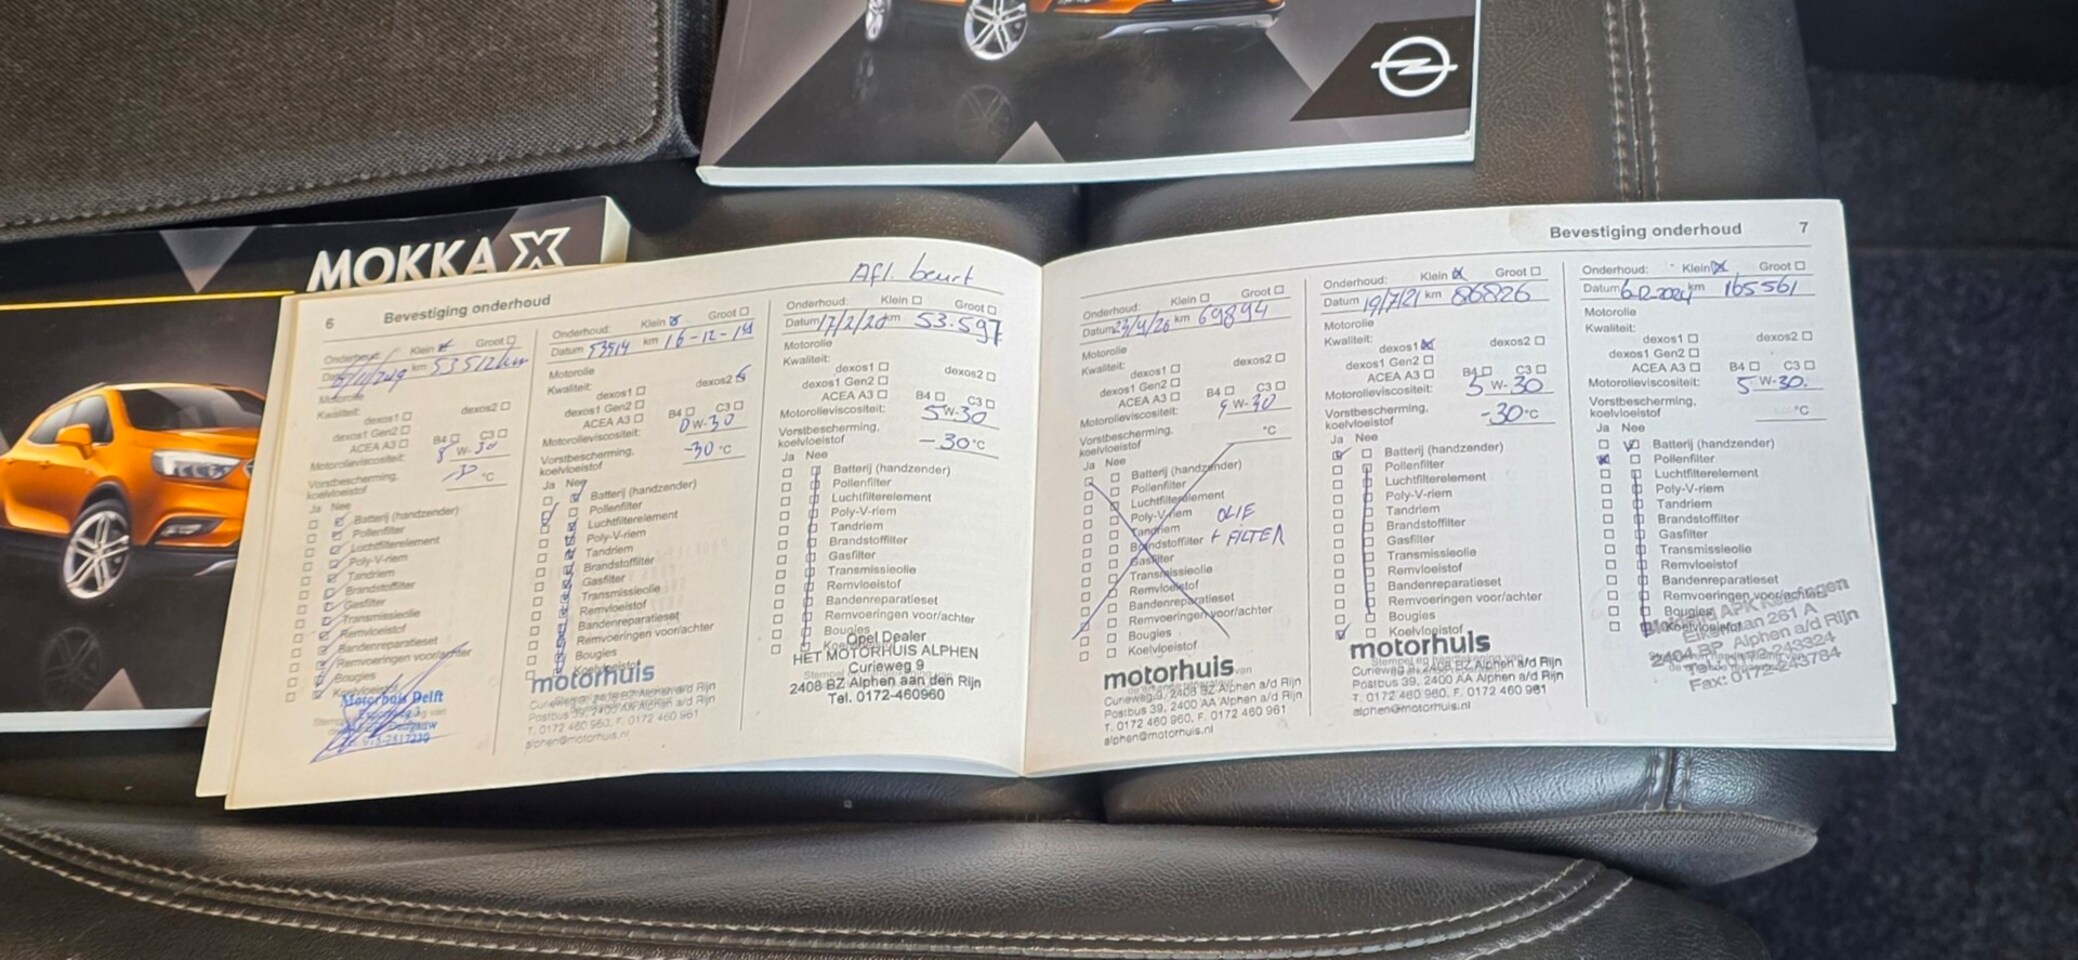 MOKKA X
6 Bevestiging onderhoud
Onderhoud: Klein Groot
Datum km 53512km
Motorolie
Kwaliteit:
dexos1 dexos2
dexos1 Gen2
ACEA A3 B4 C3
Motorolieviscositeit: W-30
Vorstbescherming,
koelvloeistof °C
Ja Nee
Batterij (handzender)
Pollenfilter
Luchtfilterelement
Poly-V-riem
Tandriem
Brandstoffilter
Gasfilter
Transmissieolie
Remvloeistof
Bandenreparatieset
Remvoeringen voor/achter
Bougies
Koelvloeistof
Motorhuis Delft
Onderhoud: Klein Groot
Datum 53514 km 16-12-
Motorolie
Kwaliteit:
dexos1 dexos2
dexos1 Gen2
ACEA A3 B4 C3
Motorolieviscositeit: 0W-30
Vorstbescherming,
koelvloeistof -30 °C
Ja Nee
Batterij (handzender)
Pollenfilter
Luchtfilterelement
Poly-V-riem
Tandriem
Brandstoffilter
Gasfilter
Transmissieolie
Remvloeistof
Bandenreparatieset
Remvoeringen voor/achter
Bougies
Koelvloeistof
motorhuis
Curieweg 9, 2408 BZ Alphen a/d Rijn
Postbus 39, 2400 AA Alphen a/d Rijn
T. 0172 460 960, F. 0172 460 961
alphen@motorhuis.nl
Afl. beurt
Onderhoud: Klein Groot
Datum 17/2/20 km 53.597
Motorolie
Kwaliteit:
dexos1 dexos2
dexos1 Gen2
ACEA A3 B4 C3
Motorolieviscositeit: 5W-30
Vorstbescherming,
koelvloeistof -30 °C
Ja Nee
Batterij (handzender)
Pollenfilter
Luchtfilterelement
Poly-V-riem
Tandriem
Brandstoffilter
Gasfilter
Transmissieolie
Remvloeistof
Bandenreparatieset
Remvoeringen voor/achter
Bougies
Opel Dealer
HET MOTORHUIS ALPHEN
Curieweg 9
2408 BZ Alphen aan den Rijn
Tel. 0172-460960
Bevestiging onderhoud 7
Onderhoud: Klein Groot
Datum km 69894
Motorolie
Kwaliteit:
dexos1 dexos2
dexos1 Gen2
ACEA A3 B4 C3
Motorolieviscositeit: W-30
Vorstbescherming,
koelvloeistof °C
Ja Nee
Batterij (handzender)
Pollenfilter
Luchtfilterelement
Poly-V-riem OLIE
Tandriem
Brandstoffilter + FILTER
Gasfilter
Transmissieolie
Remvloeistof
Bandenreparatieset
Remvoeringen voor/achter
Bougies
Koelvloeistof
motorhuis
Curieweg 9, 2408 BZ Alphen a/d Rijn
Postbus 39, 2400 AA Alphen a/d Rijn
T. 0172 460 960, F. 0172 460 961
alphen@motorhuis.nl
Onderhoud: Klein Groot
Datum 19/7/21 km 86826
Motorolie
Kwaliteit:
dexos1 dexos2
dexos1 Gen2
ACEA A3 B4 C3
Motorolieviscositeit: 5 W-30
Vorstbescherming,
koelvloeistof -30 °C
Ja Nee
Batterij (handzender)
Pollenfilter
Luchtfilterelement
Poly-V-riem
Tandriem
Brandstoffilter
Gasfilter
Transmissieolie
Remvloeistof
Bandenreparatieset
Remvoeringen voor/achter
Bougies
Koelvloeistof
motorhuis
Curieweg 9, 2408 BZ Alphen a/d Rijn
Postbus 39, 2400 AA Alphen a/d Rijn
T. 0172 460 960, F. 0172 460 961
alphen@motorhuis.nl
Onderhoud: Klein Groot
Datum 6-12-2024 km 165561
Motorolie
Kwaliteit:
dexos1 dexos2
dexos1 Gen2
ACEA A3 B4 C3
Motorolieviscositeit: 5 W-30.
Vorstbescherming,
koelvloeistof °C
Ja Nee
Batterij (handzender)
Pollenfilter
Luchtfilterelement
Poly-V-riem
Tandriem
Brandstoffilter
Gasfilter
Transmissieolie
Remvloeistof
Bandenreparatieset
Remvoeringen voor/achter
Bougies
Koelvloeistof
APK Keuringen
261 A
2404 BP Alphen a/d Rijn
Tel: 0172-243324
Fax: 0172-243784